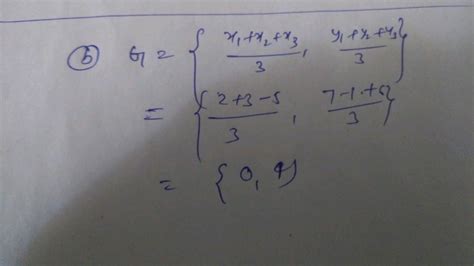 (b) G = { (x₁+x₂+x₃)/3, (y₁+y₂+y₃)/3 }
= { (2+3-5)/3, (7-1+6)/3 }
= { 0, 4 )